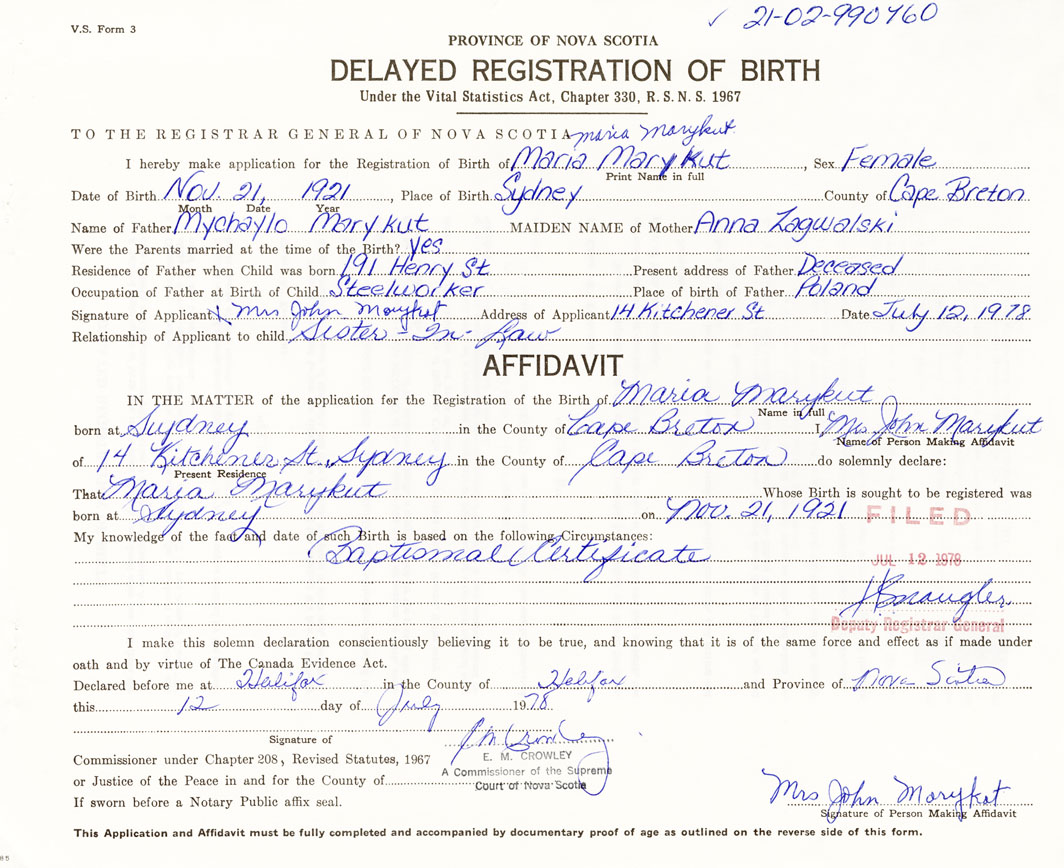 V.S. Form 3
✓ 21-02-990760
PROVINCE OF NOVA SCOTIA
DELAYED REGISTRATION OF BIRTH
Under the Vital Statistics Act, Chapter 330, R. S. N. S. 1967
TO THE REGISTRAR GENERAL OF NOVA SCOTIA Maria Marykut
I hereby make application for the Registration of Birth of Maria Marykut, Sex Female
Print Name in full
Date of Birth Nov. 21, 1921, Place of Birth Sydney County of Cape Breton
Month Date Year
Name of Father Mychaylo Marykut MAIDEN NAME of Mother Anna Zagwalski
Were the Parents married at the time of the Birth? Yes
Residence of Father when Child was born 191 Henry St Present address of Father Deceased
Occupation of Father at Birth of Child Steelworker Place of birth of Father Poland
Signature of Applicant X Mrs John Marykot Address of Applicant 14 Kitchener St Date July 12, 1978
Relationship of Applicant to child Sister-In-Law
AFFIDAVIT
IN THE MATTER of the application for the Registration of the Birth of Maria Marykut
Name in full
born at Sydney in the County of Cape Breton I, Mrs John Marykut
Name of Person Making Affidavit
of 14 Kitchener St., Sydney in the County of Cape Breton do solemnly declare:
Present Residence
That Maria Marykut Whose Birth is sought to be registered was
born at Sydney on Nov. 21, 1921
FILED
My knowledge of the fact and date of such Birth is based on the following Circumstances:
Baptismal Certificate
JUL 12 1978
Deputy Registrar General
I make this solemn declaration conscientiously believing it to be true, and knowing that it is of the same force and effect as if made under
oath and by virtue of The Canada Evidence Act.
Declared before me at Halifax in the County of Halifax and Province of Nova Scotia
this 12 day of July 1978
Signature of
Commissioner under Chapter 208, Revised Statutes, 1967
E. M. CROWLEY
A Commissioner of the Supreme
Court of Nova Scotia
or Justice of the Peace in and for the County of
If sworn before a Notary Public affix seal.
Mrs John Marykot
Signature of Person Making Affidavit
This Application and Affidavit must be fully completed and accompanied by documentary proof of age as outlined on the reverse side of this form.
85